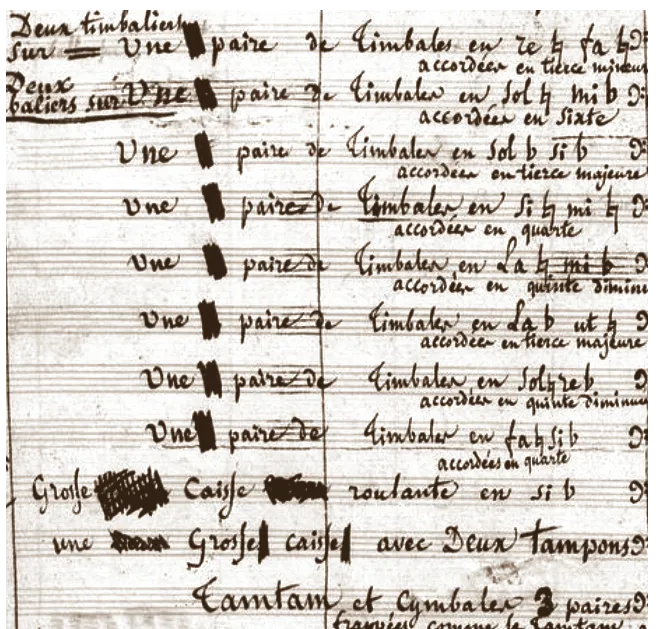 Deux timbaliers
sur Une paire de Timbales en re ♮ fa ♮
accordées en tierce mineur
Deux
baliers sur Une paire de Timbales en sol ♮ mi b
accordées en Sixte
Une paire de Timbales en sol b si b
accordées en tierce majeure
Une paire de Timbales en si ♮ mi ♮
accordées en quarte
Une paire de Timbales en La ♮ mi b
accordées en quinte diminu
Une paire de Timbales en La b ut ♮
accordées en tierce majeure
Une paire de Timbales en sol ♮ re b
accordées en quinte diminue
Une paire de Timbales en fa ♮ si b
accordées en quarte
Grosse Caisse roulante en si b
une Grosse caisse avec Deux tampons
Tamtam et Cymbales 3 paires
frappées comme le Tamtam